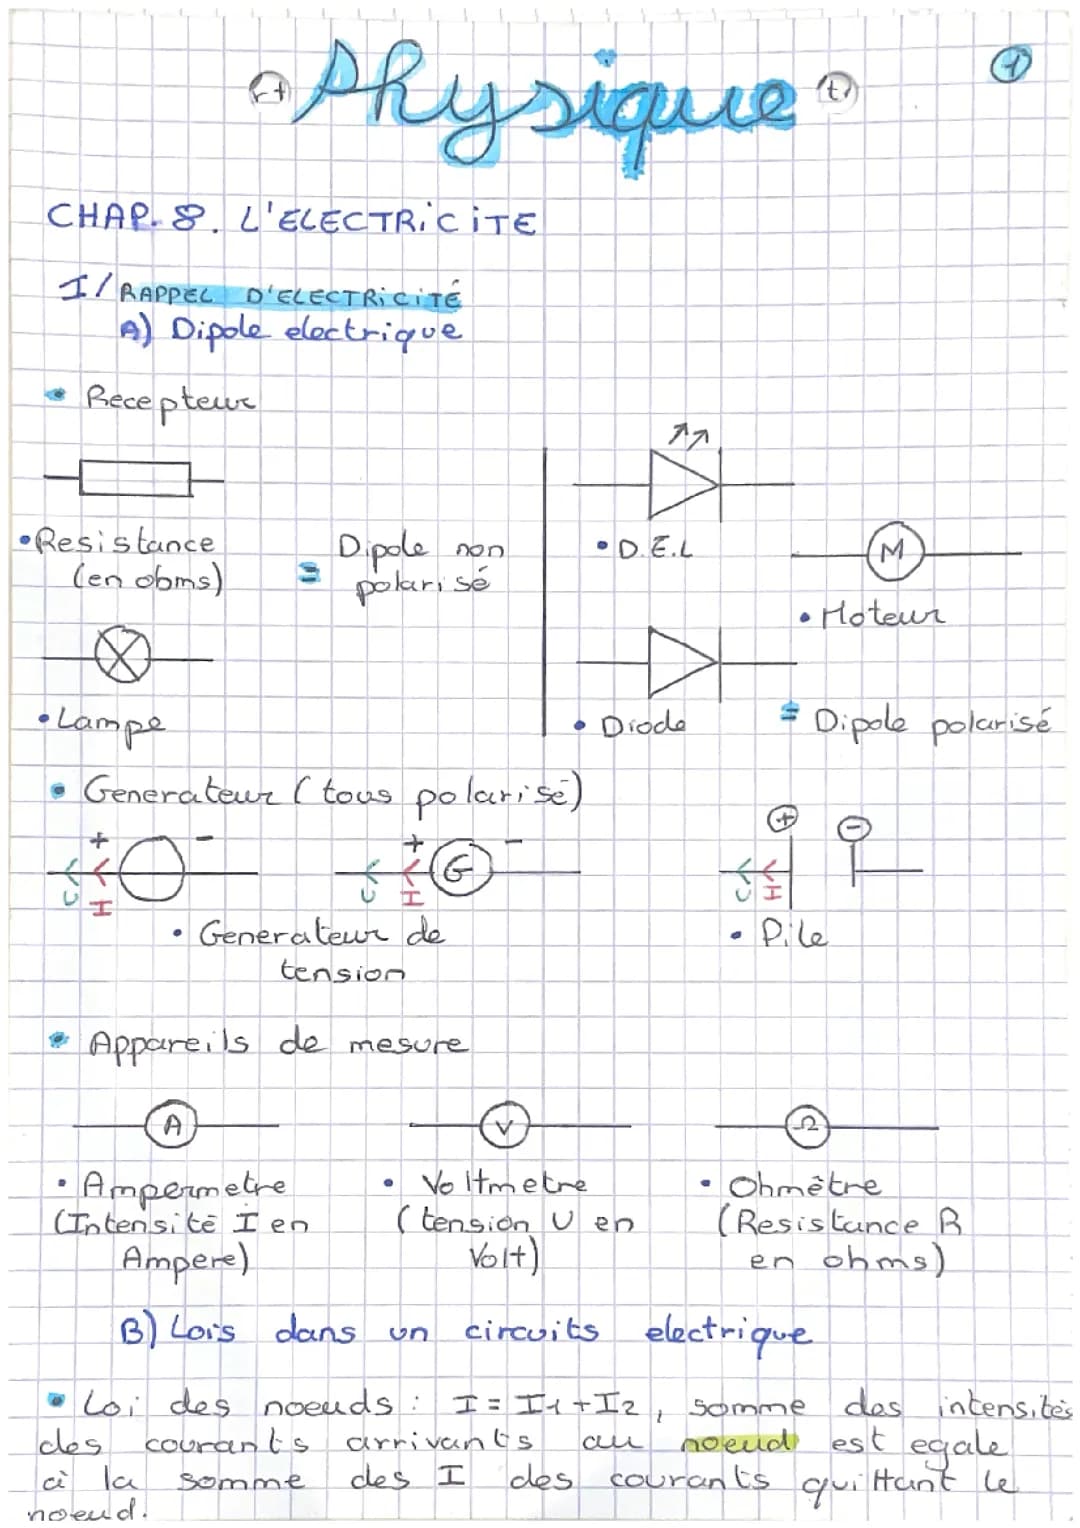 Physique
1
CHAP. 8. L'ELECTRiCiTE
I/ RAPPEL D'ELECTRiCiTÉ
A) Dipole electrique
• Recepteur
• Resistance
(en obms)
= Dipole non
polarisé
• D.E.L
M
• Moteur
• Lampe
• Diode
= Dipole polarisé
• Generateur (tous polarisé)
+ -
U I
+ G -
U I
+ -
U I
• Generateur de
tension
• Pile
• Appareils de mesure
A
V
Ω
• Ampermetre
(Intensité I en
Ampere)
• Voltmetre
(tension U en
Volt)
• Ohmètre
(Resistance R
en ohms)
B) Lois dans un circuits electrique
• Loi des noeuds : I = I1 + I2, somme des intensités
des courants arrivants au noeud est egale
à la somme des I des courants quittant le
noeud.